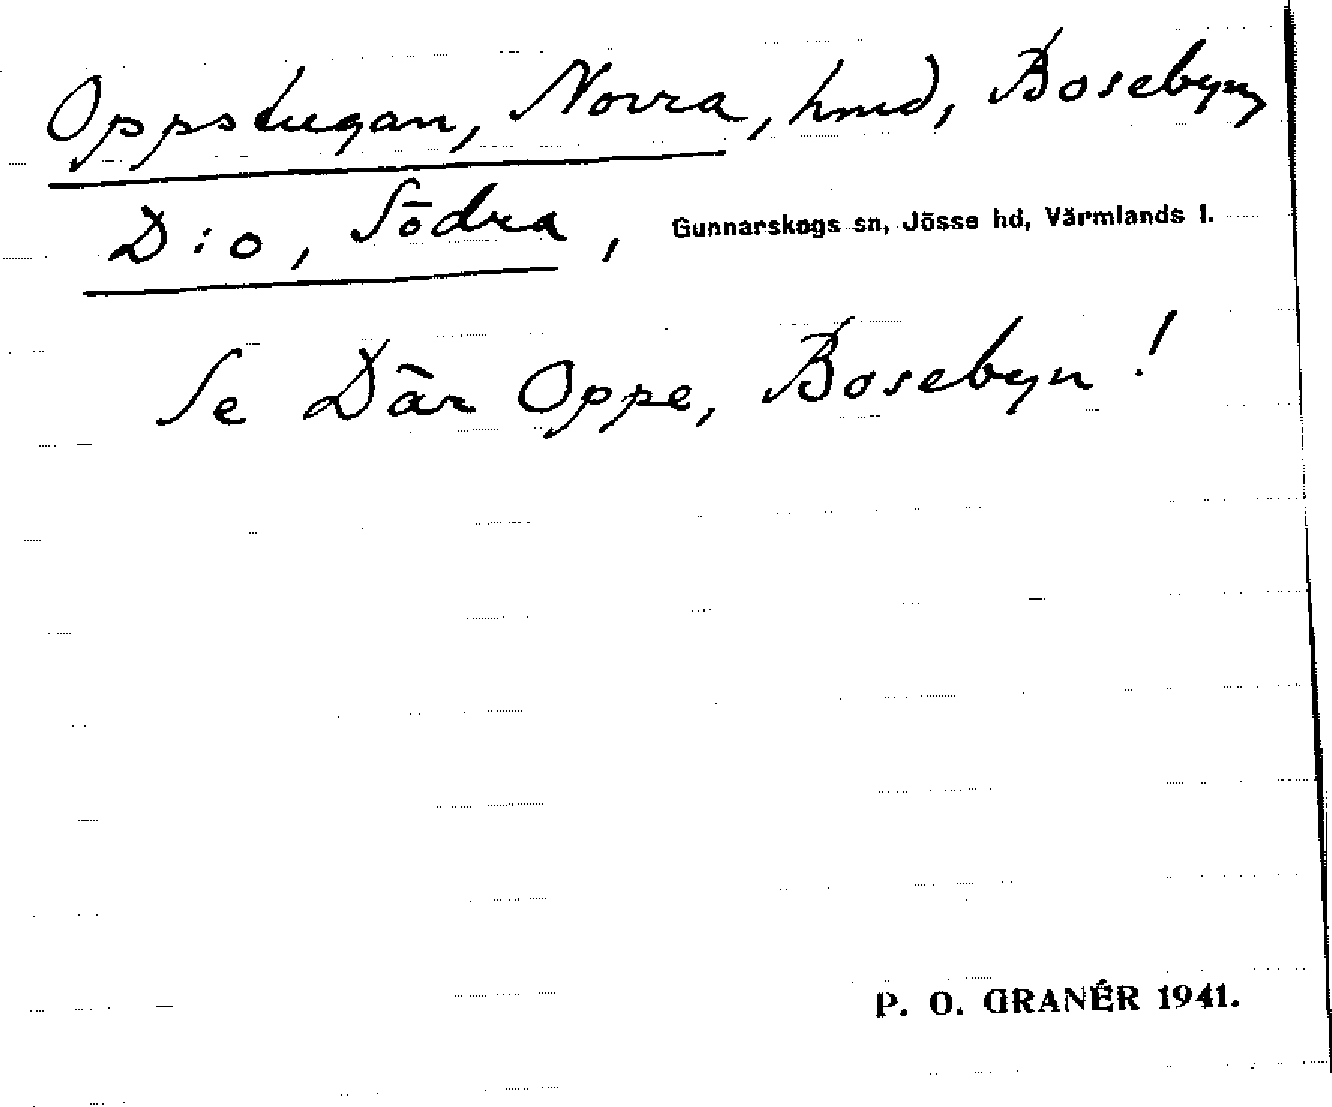 Oppstugan, Norra, hmd, Bosebyn,
D:o, Södra, Gunnarskogs sn, Jösse hd, Värmlands l.
Se Där Oppe, Bosebyn!
P. O. GRANÉR 1941.